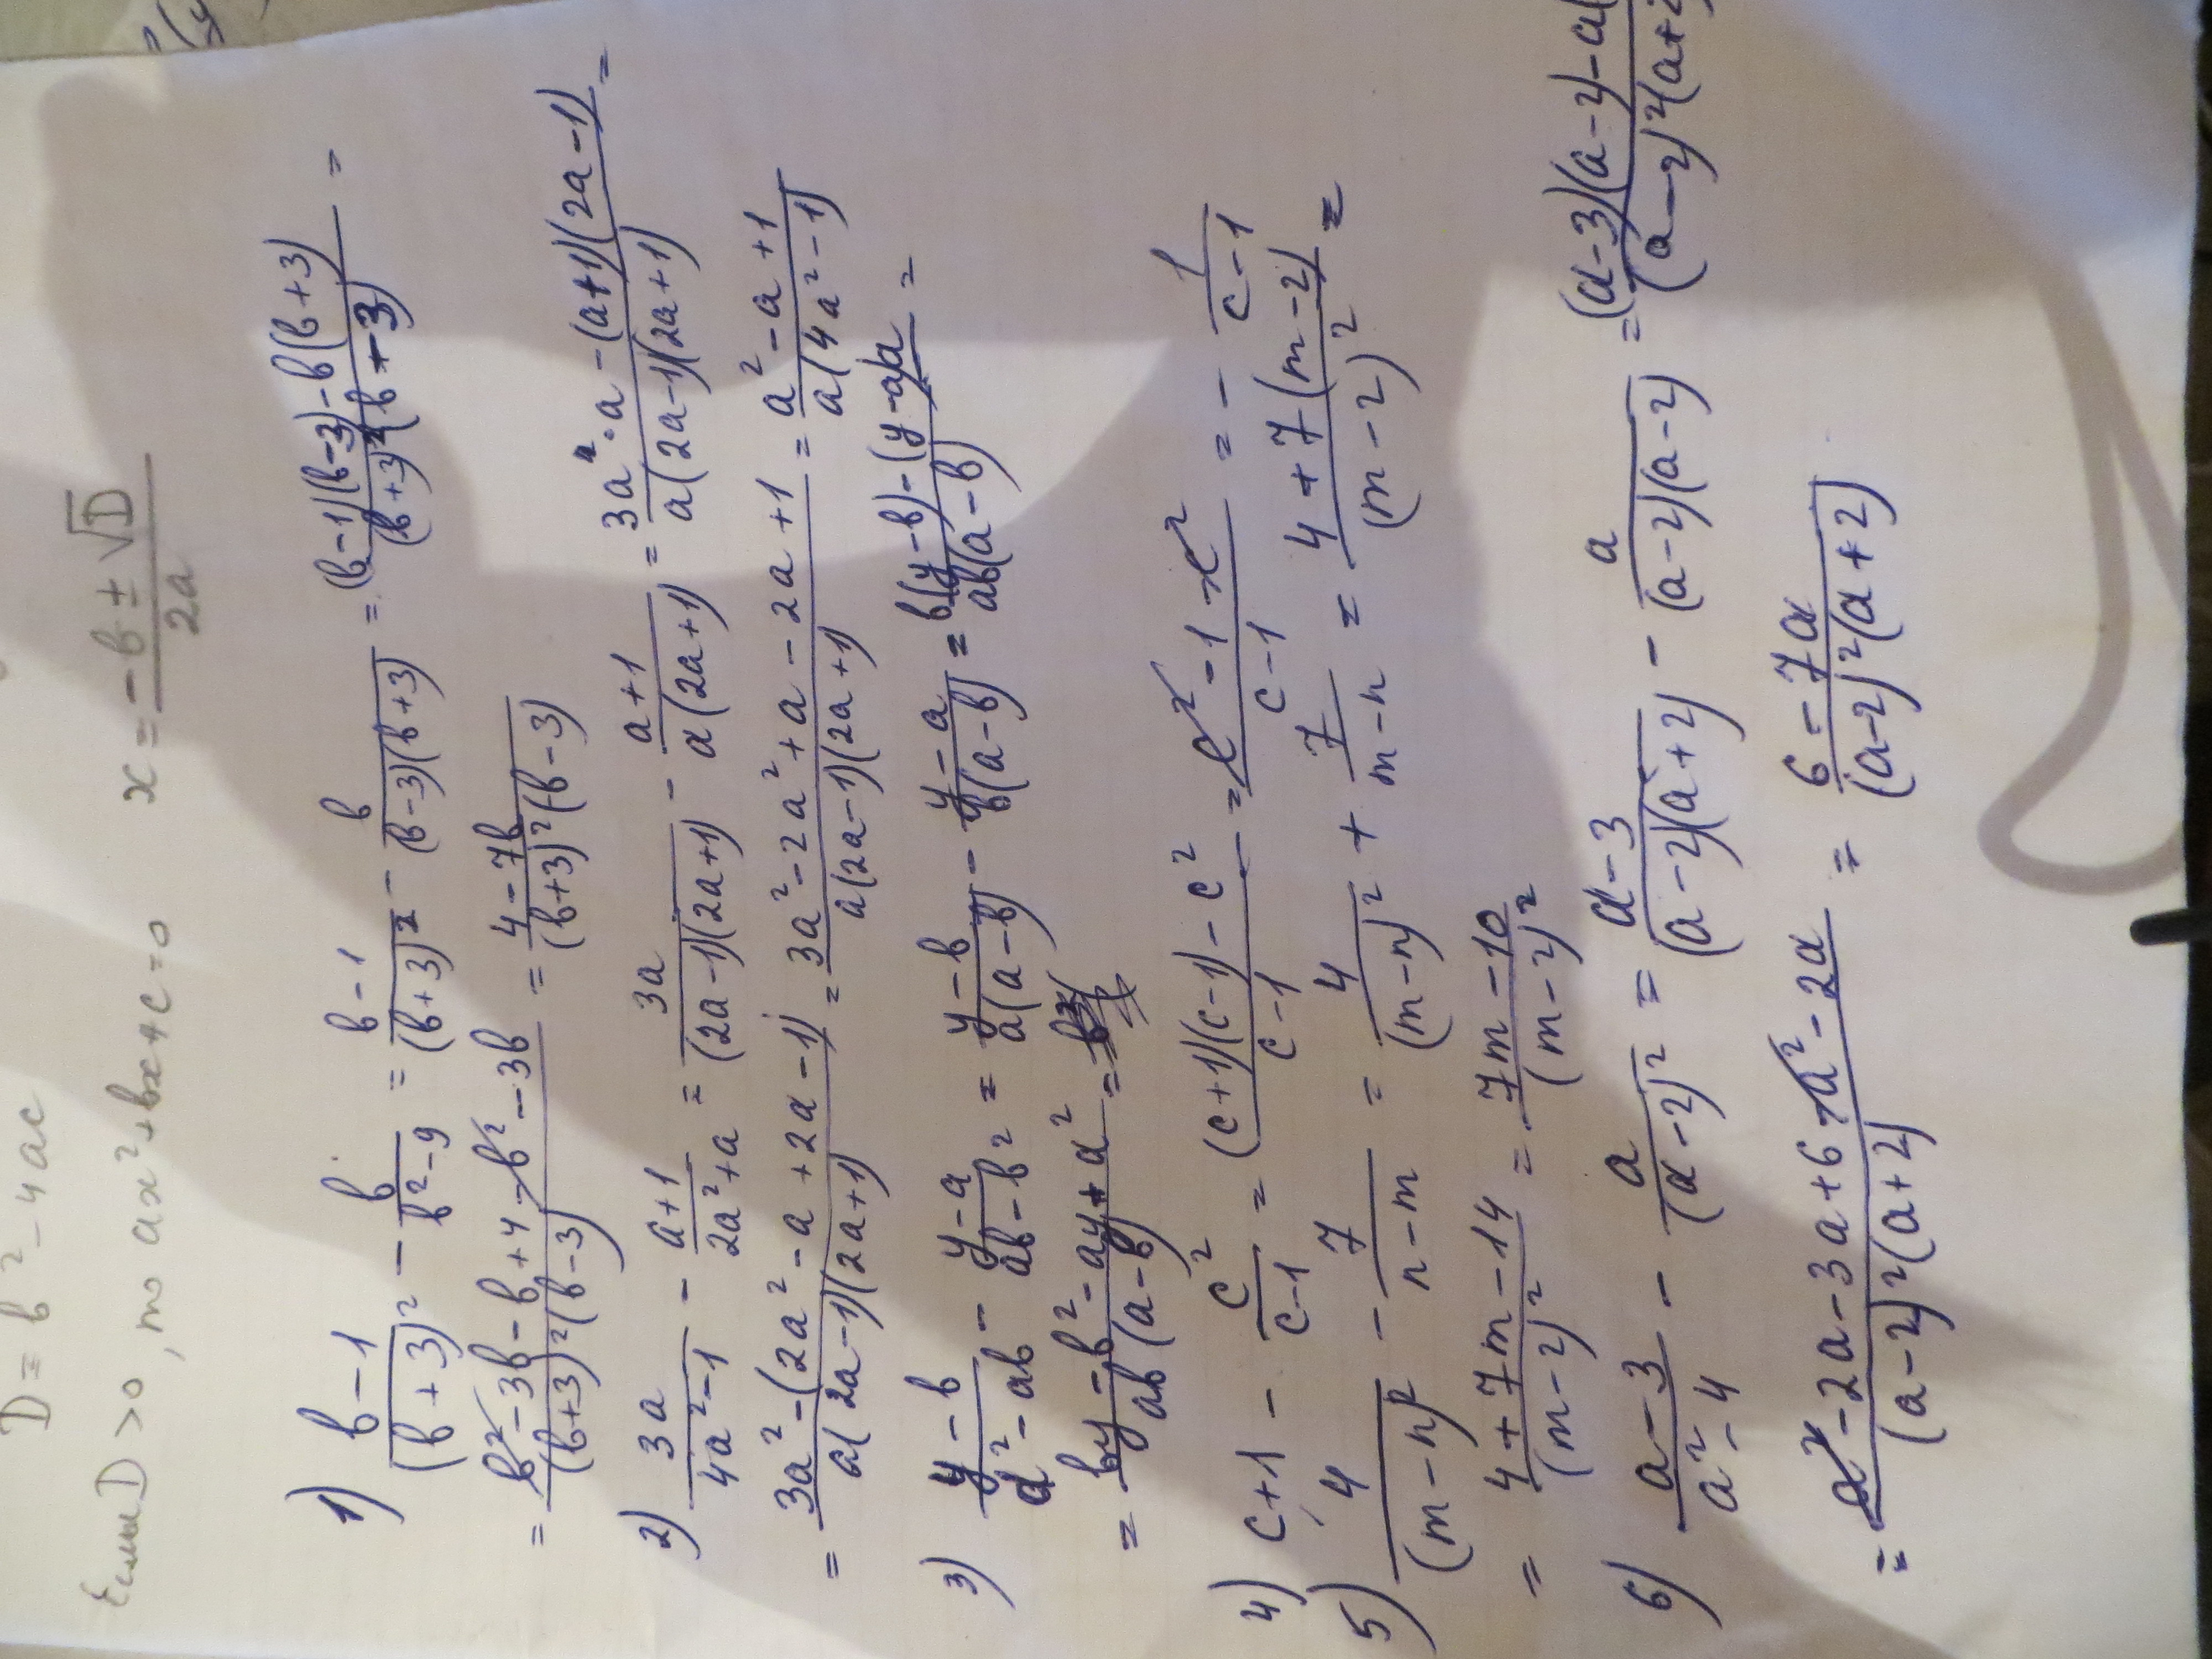 D = b² - 4ac
Если D > 0, то ax² + bx + c = 0   x = (-b ± √D)/(2a)
1) (b-1)/(b+3)² - b/(b²-9) = (b-1)/(b+3)² - b/((b-3)(b+3)) = ((b-1)(b-3)-b(b+3))/((b+3)²(b-3)) =
= (b²-3b-b+4-b²-3b)/((b+3)²(b-3)) = (4-7b)/((b+3)²(b-3))
2) 3a/(4a²-1) - (a+1)/(2a²+a) = 3a/((2a-1)(2a+1)) - (a+1)/(a(2a+1)) = (3a·a-(a+1)(2a-1))/(a(2a-1)(2a+1)) =
= (3a²-(2a²-a+2a-1))/(a(2a-1)(2a+1)) = (3a²-2a²+a-2a+1)/(a(2a-1)(2a+1)) = (a²-a+1)/(a(4a²-1))
3) (y-b)/(a²-ab) - (y-a)/(ab-b²) = (y-b)/(a(a-b)) - (y-a)/(b(a-b)) = (b(y-b)-(y-a)a)/(ab(a-b)) =
= (by-b²-ay+a²)/(ab(a-b)) =
4) c+1 - c²/(c-1) = ((c+1)(c-1)-c²)/(c-1) = (c²-1-c²)/(c-1) = - 1/(c-1)
5) 4/(m-n)² - 7/(n-m) = 4/(m-n)² + 7/(m-n) = (4+7(m-2))/(m-2)² =
= (4+7m-14)/(m-2)² = (7m-10)/(m-2)²
6) (a-3)/(a²-4) - a/(a-2)² = (a-3)/((a-2)(a+2)) - a/((a-2)(a-2)) = ((a-3)(a-2)-a(/((a-2)²(a+2
= (a²-2a-3a+6-a²-2a)/((a-2)²(a+2)) = (6-7a)/((a-2)²(a+2))